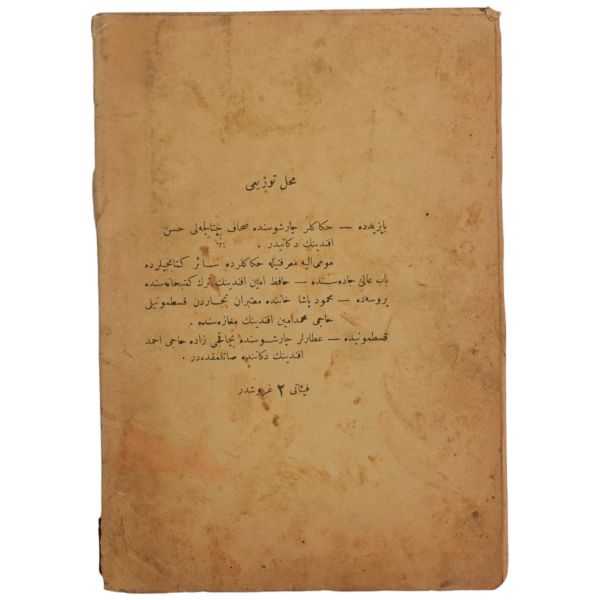 محل توزیعی
بایزیدده — حکاکلر چارشوسنده صحاف چتالجه‌لی حسن
افندینك دكانیدر .
مومی‌الیه معرفتیله حکاکلرده سائر کتابجیلرده
باب عالی جاده‌سنده — حافظ امین افندینك ترك کتبخانه‌سنده
بروسه‌ده — محمود پاشا خاننده معتبران تجاردن قسطمونیلی
حاجی محمد امین افندینك مغازه‌سنده .
قسطمونیده — عطارلر چارشوسنده بچاقجی زاده حاجی احمد
افندینك دكاننده صاتلمقده‌در .
فیئاتی ۲ غروشدر